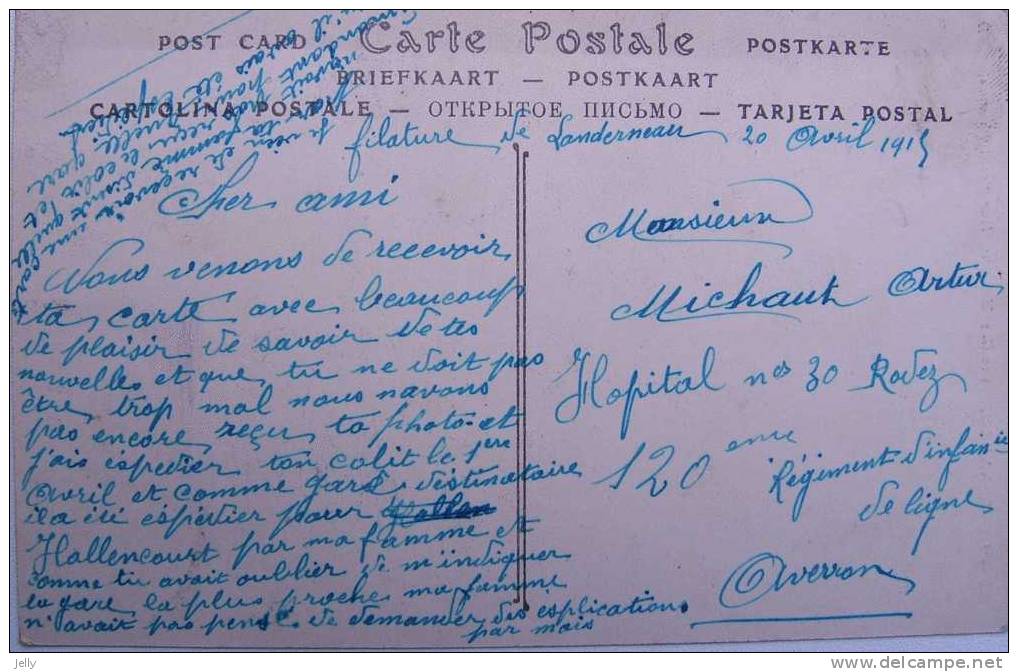 POST CARD Carte Postale POSTKARTE
BRIEFKAART — POSTKAART
CARTOLINA POSTALE — ОТКРЫТОЕ ПИСЬМО — TARJETA POSTAL
filature de Landerneau 20 Avril 1915
Cher ami
Nous venons de recevoir
ta carte avec beaucoup
de plaisir de savoir de tes
nouvelles et que tu ne doit pas
être trop mal nous navons
pas encore reçu ta photo et
j'ais éspedier ton colit le 1er
Avril et comme gare déstinataire
il a été éspédier pour
Hallencourt par ma famme et
comme tu avait oublier de m'indiquer
la gare la plus proche ma famme
n'avait pas pensé de demander des esplications
par mais
je vien de recevoir une carte
Monsieur
Michaut Artur
Hopital nos 30 Rodez
120 eme
Régiment d'infanie
de ligne
Averron
jelly
http://www.delcampe.net